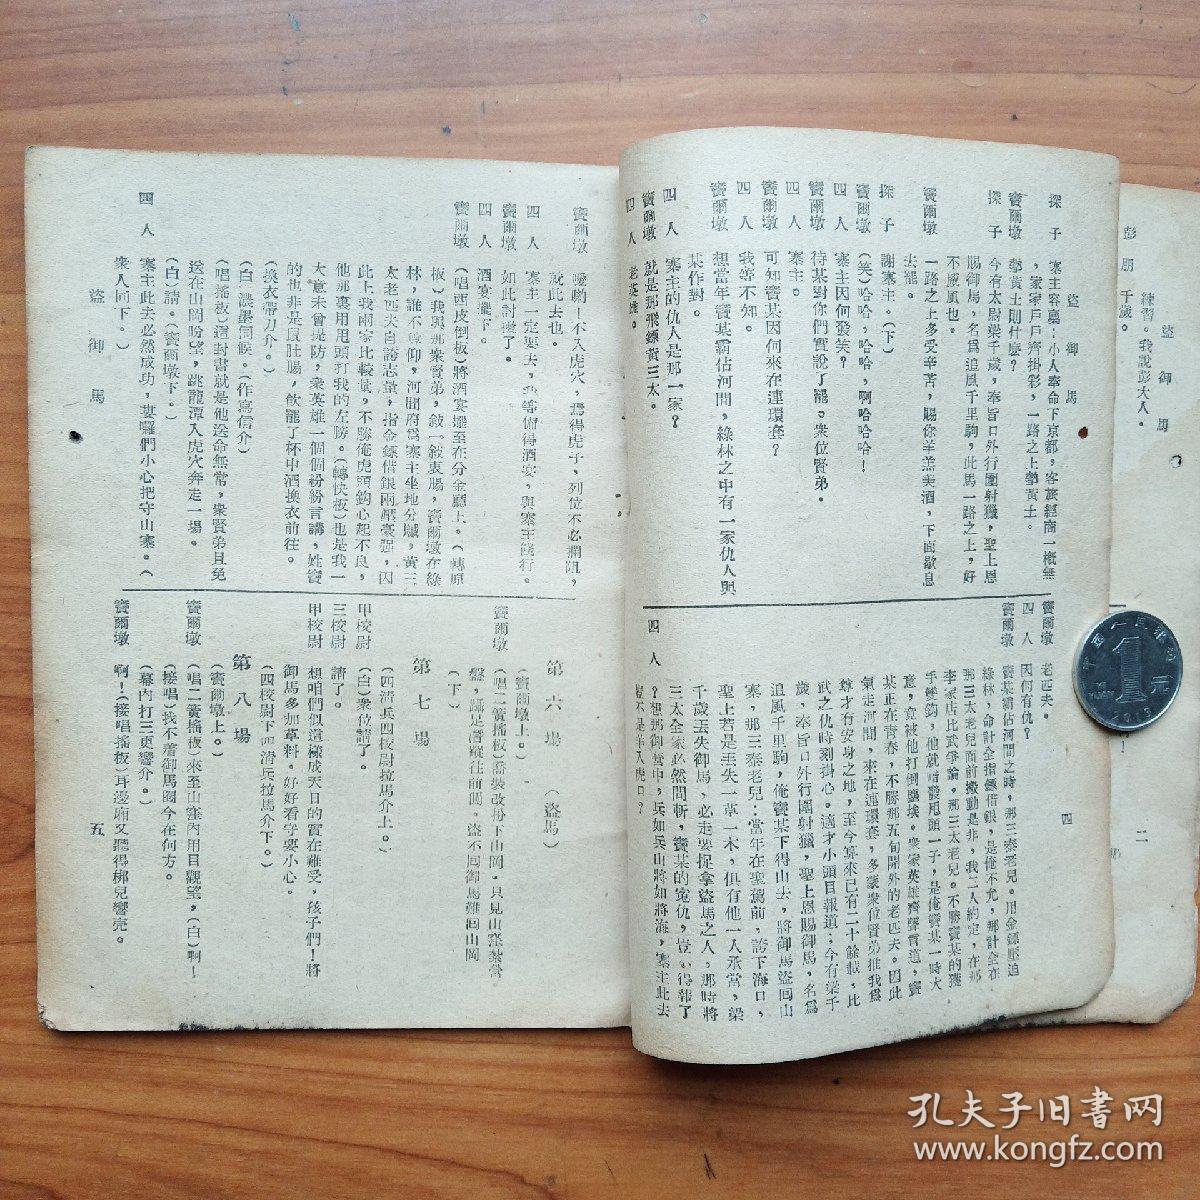 盜御馬
二
練習。我說彭大人。
彭朋　千歲。
盜御馬
四
探子　寨主容稟：小人奉命下京都，客旅經商一概無
，家家戶戶齊掛彩，一路之上擧黃土。
竇爾墩　擧黃土則什麼？
探子　今有太尉梁千歲，奉旨口外行圍射獵，聖上恩
賜御馬，名爲追風千里駒，此馬一路之上，好
不威風也。
竇爾墩　一路之上多受辛苦，賜你羊羔美酒，下面歇息
去罷。
探子　謝寨主。（下）
竇爾墩　（笑）哈哈，哈哈，啊哈哈哈！
四人　寨主因何發笑？
竇爾墩　待某對你們實說了罷。衆位賢弟。
四人　寨主。
竇爾墩　可知竇某因何來在連環套？
四人　我等不知。
竇爾墩　想當年竇某霸佔河間，綠林之中有一家仇人與
某作對。
四人　寨主的仇人是那一家？
竇爾墩　就是那飛鏢黃三太。
四人　老英雄。
竇爾墩　老匹夫。
四人　因何有仇？
竇爾墩　竇某霸佔河間之時，那三泰老兒。用金鏢壓迫
綠林，命計全指鏢借銀，是俺不允，那計全在
那三太老兒面前搬動是非，我二人約定，在那
李家店比武爭論。那三太老兒。不勝竇某的護
手雙鈎，他就暗發甩頭一子，是俺竇某一時大
意，竟被他打倒塵埃。衆家英雄齊聲言道，竇
某正在靑春，不勝那五旬開外的老匹夫。因此
氣走河間，來在連環套，多蒙衆位賢弟推我爲
尊才有安身之地，至今算來已有二十餘載，比
武之仇時刻掛心。適才小頭目報道：今有梁千
歲，奉旨口外行圍射獵，聖上恩賜御馬，名爲
追風千里駒，俺竇某下得山去，將御馬盜囘山
寨，那三泰老兒：當年在聖駕前，誇下海口，
聖上若是丟失一草一木，俱有他一人承當，梁
千歲丟失御馬，必走要捉拿盜馬之人，那時將
三太全家必然問斬，竇某的寃仇，豈不得報了
四人　？想那御營中，兵如兵山將如將海，寨主此去
豈不是羊入虎口？
竇爾墩　噯喲！不入虎穴，焉得虎子，列位不必攔阻，
就此去也。
四人　寨主一定要去，我等備得酒宴，與寨主餞行。
竇爾墩　如此討擾了。
四人　酒宴擺下。
竇爾墩　（唱西皮倒板）將酒宴擺至在分金廳上。（轉原
板）我與那衆賢弟，敍一敍衷腸，竇爾墩在綠
林，誰不尊仰，河間府爲寨主坐地分贓，黃三
太老匹夫自誇志量，指金鏢借銀兩壓豪强，因
此上我兩家比較量，不勝俺虎頭鈎心起不良，
他那裏用甩頭打我的左膀。（轉快板）也是我一
大意未曾提防，衆英雄一個個紛紛言講，姓竇
的也非是鼠肚腸，飮罷了杯中酒換衣前往。
（換衣帶刀介。）
（白）濃墨伺候。（作寫信介）
（唱搖板）這封書就是他送命無常，衆賢弟且免
送在山岡盼望，跳龍潭入虎穴奔走一場。
（白）請。（竇爾墩下。）
四人　寨主此去必然成功，嘍囉們小心把守山寨。（
衆人同下。）
第六場　（盜馬）
（竇爾墩上。）
竇爾墩　（唱二簧搖板）喬裝改扮下山岡，只見山窪紮營
盤，躡足潛蹤往前闖。盜不囘御馬難囘山岡
（下）
第七場
（四清兵四校尉拉馬介上。）
甲校尉　（白）衆位請了。
三校尉　請了。
甲校尉　想咱們似這樣成天日的實在難受，孩子們！將
御馬多加草料。好好看守要小心。
（四校尉下四清兵拉馬介下。）
第八場
（竇爾墩上。）
竇爾墩　（唱二簧搖板）來至山窪內用目觀望，（白）啊！
（接唱）找不着御馬圈今在何方。
（幕內打三更響介。）
竇爾墩　啊！（接唱搖板）耳邊廂又聽得梆兒響亮。
盜御馬
五
孔夫子旧书网
www.kongfz.com
中国人民银行
1元
2013